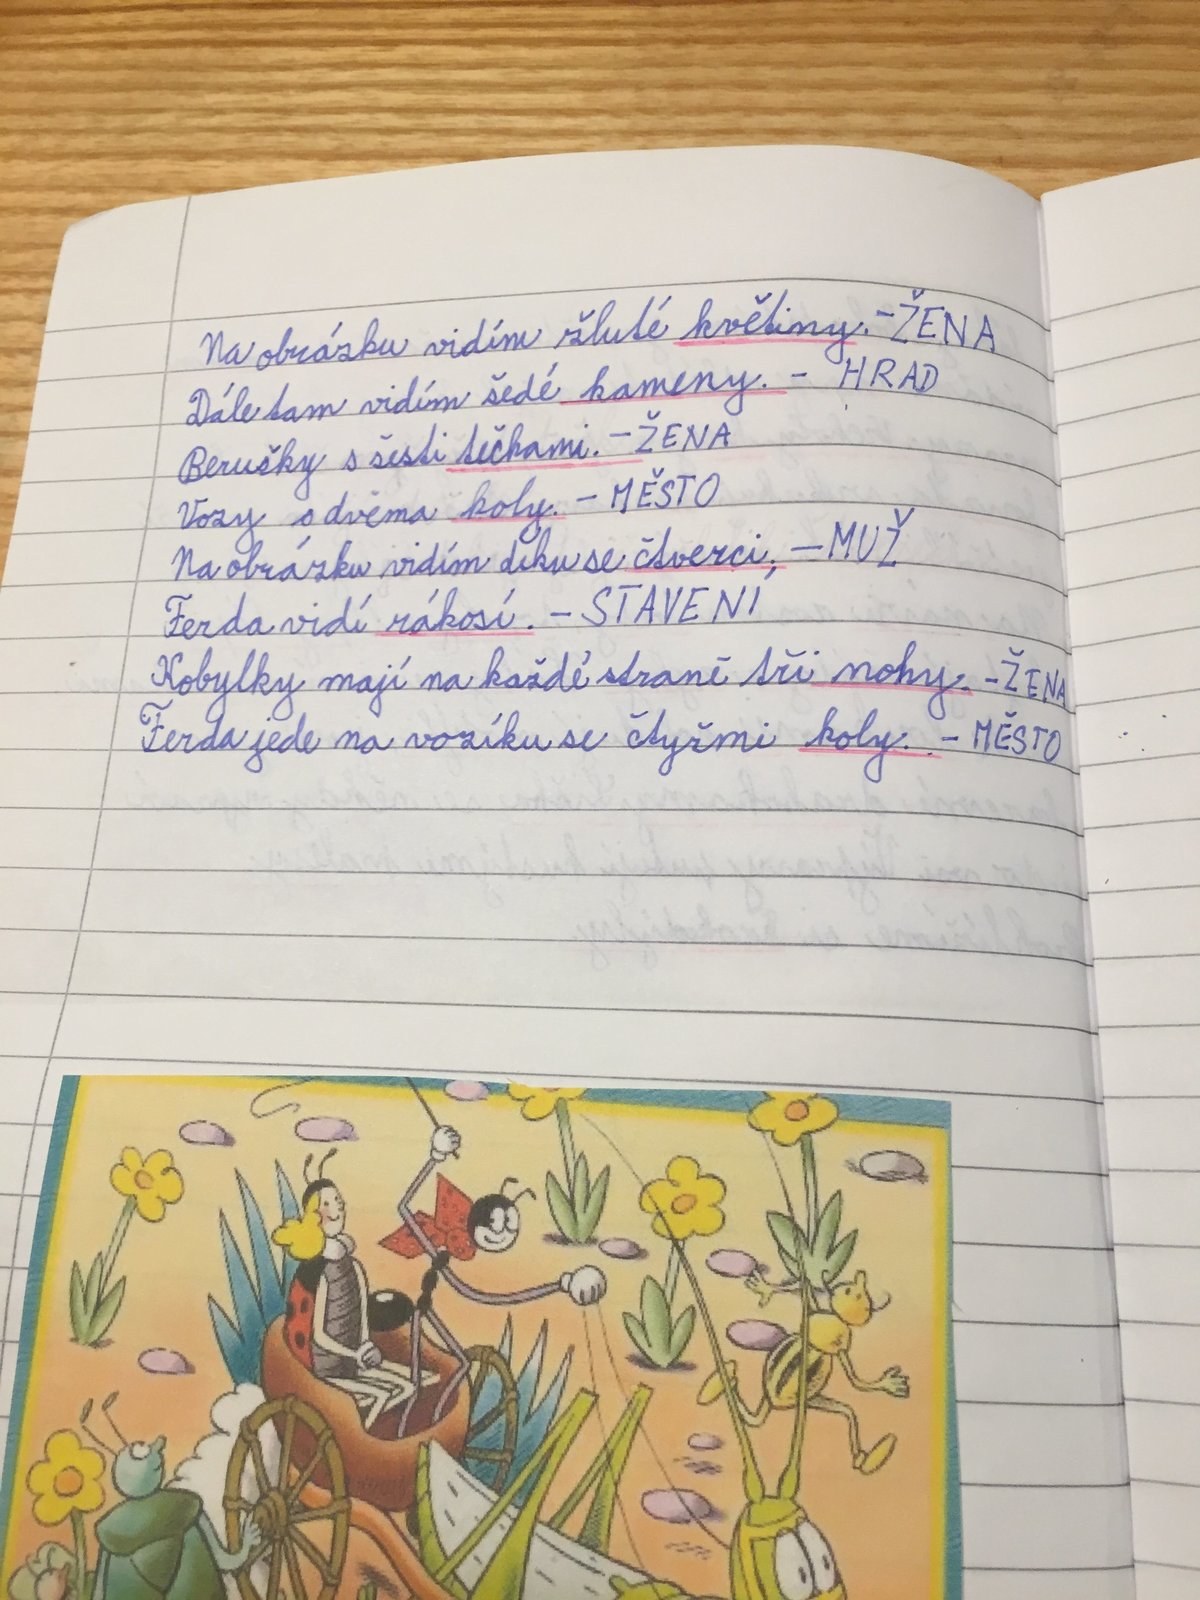 Na obrázku vidím žluté květiny. - ŽENA
Dále tam vidím šedé kameny. - HRAD
Berušky s šesti tečkami. - ŽENA
Vozy s dvěma koly. - MĚSTO
Na obrázku vidím deku se čtverci, - MUŽ
Ferda vidí rákosí. - STAVENÍ
Kobylky mají na každé straně tři nohy. - ŽENA
Ferda jede na vozíku se čtyřmi koly. - MĚSTO